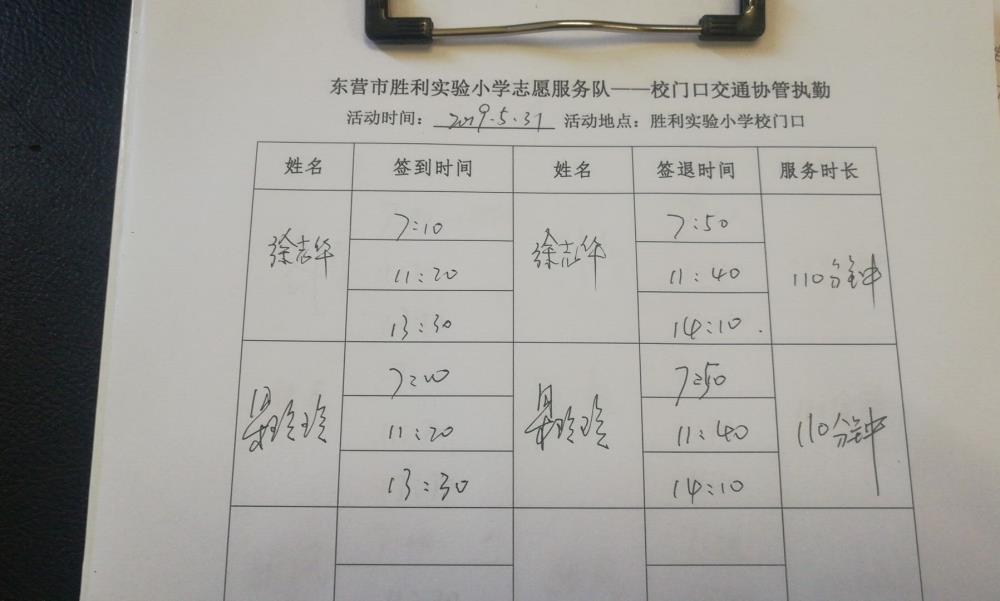 东营市胜利实验小学志愿服务队——校门口交通协管执勤
活动时间：2019.5.31 活动地点：胜利实验小学校门口
姓名 签到时间 姓名 签退时间 服务时长
徐志华 7:10 徐志华 7:50 110分钟
11:20 11:40
13:30 14:10.
玲玲 7:10 玲玲 7:50 110分钟
11:20 11:40
13:30 14:10